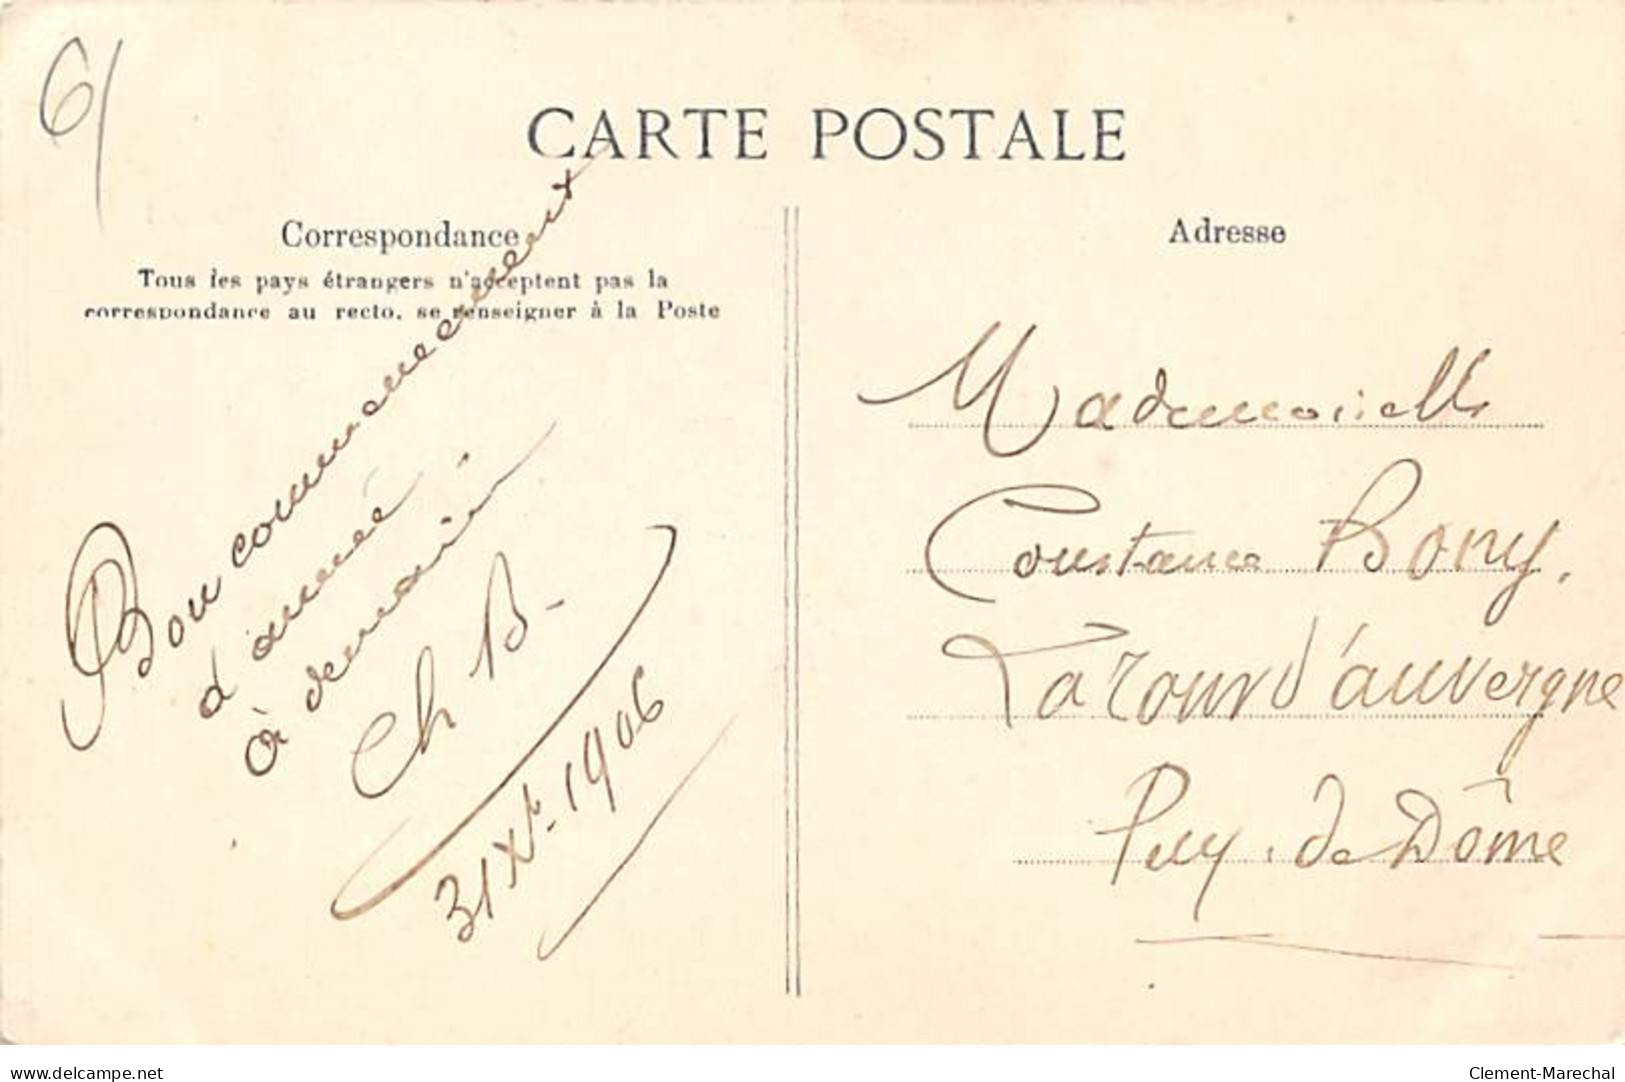 6/
CARTE POSTALE
Correspondance
Tous les pays étrangers n'acceptent pas la
correspondance au recto, se renseigner à la Poste
Bon commencement
d'année
à demain
Ch B-
31 Xbr. 1906
Adresse
Mademoiselle
Constance Bony.
La Tour d'auvergne
Puy. de Dôme
www.delcampe.net
Clement-Marechal